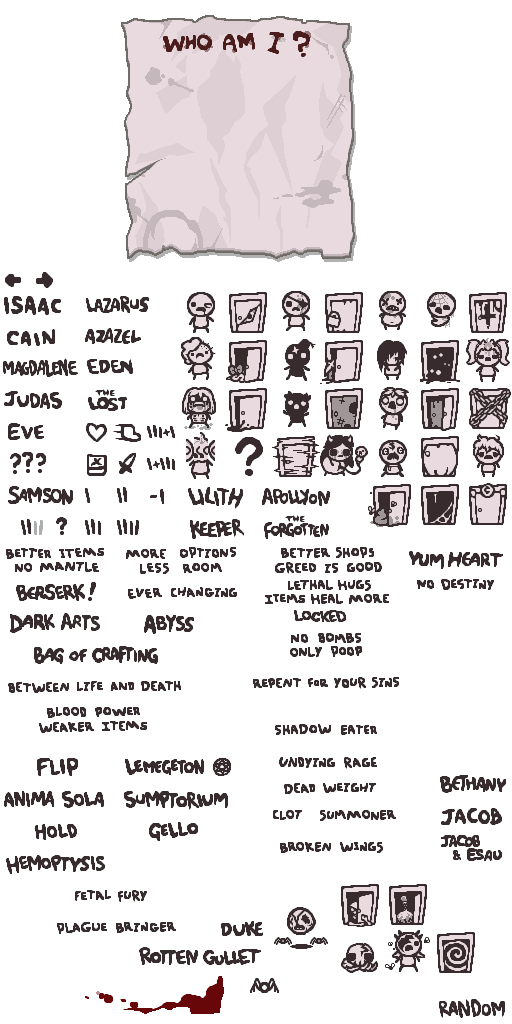 WHO AM I?
ISAAC LAZARUS
CAIN AZAZEL
MAGDALENE EDEN
JUDAS THE LOST
EVE
???
?
SAMSON LILITH APOLLYON
? KEEPER THE FORGOTTEN
BETTER ITEMS
NO MANTLE
MORE OPTIONS
LESS ROOM
BETTER SHOPS
GREED IS GOOD
YUM HEART
LETHAL HUGS
ITEMS HEAL MORE
NO DESTINY
BERSERK! EVER CHANGING
LOCKED
DARK ARTS ABYSS
NO BOMBS
ONLY POOP
BAG OF CRAFTING
BETWEEN LIFE AND DEATH
REPENT FOR YOUR SINS
BLOOD POWER
WEAKER ITEMS
SHADOW EATER
FLIP LEMEGETON
UNDYING RAGE
ANIMA SOLA SUMPTORIUM
DEAD WEIGHT
BETHANY
HOLD GELLO
CLOT SUMMONER
JACOB
BROKEN WINGS
JACOB
& ESAU
HEMOPTYSIS
FETAL FURY
PLAGUE BRINGER
DUKE
ROTTEN GULLET
RANDOM